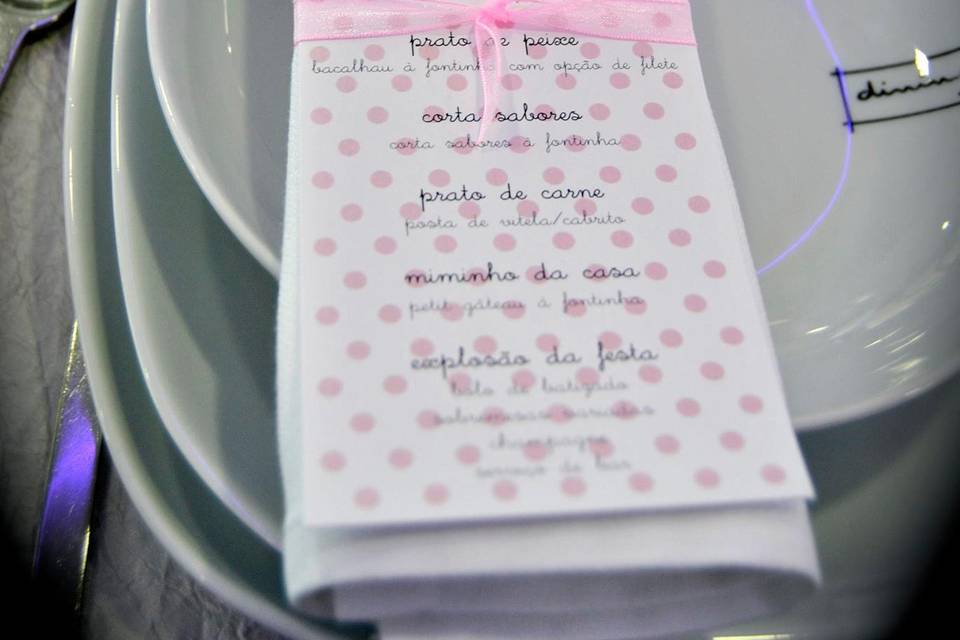 prato de peixe
bacalhau à fontinha com opção de filete
corta sabores
corta sabores à fontinha
prato de carne
posta de vitela/cabrito
miminho da casa
petit gâteau à fontinha
explosão da festa
bolo de batizado
sobremesas variadas
champagne
serviço de bar